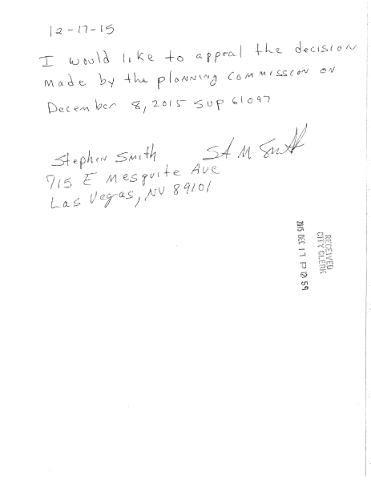 12-17-15
I would like to appeal the decision
made by the planning commission on
December 8, 2015 SUP 61097
Stephen Smith St M Smith
715 E Mesquite Ave
Las Vegas, NV 89101
RECEIVED
CITY CLERK
2015 DEC 17 P